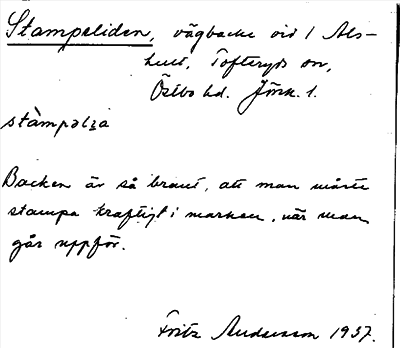 Stampeliden, vägbacke vid 1 Als-
hult, Tofteryds sn,
Östbo hd. Jönk. l.
stàmpəlɩa
Backen är så brant, att man måste
stampa kraftigt i marken, när man
går uppför.
Fritz Andersson 1937.